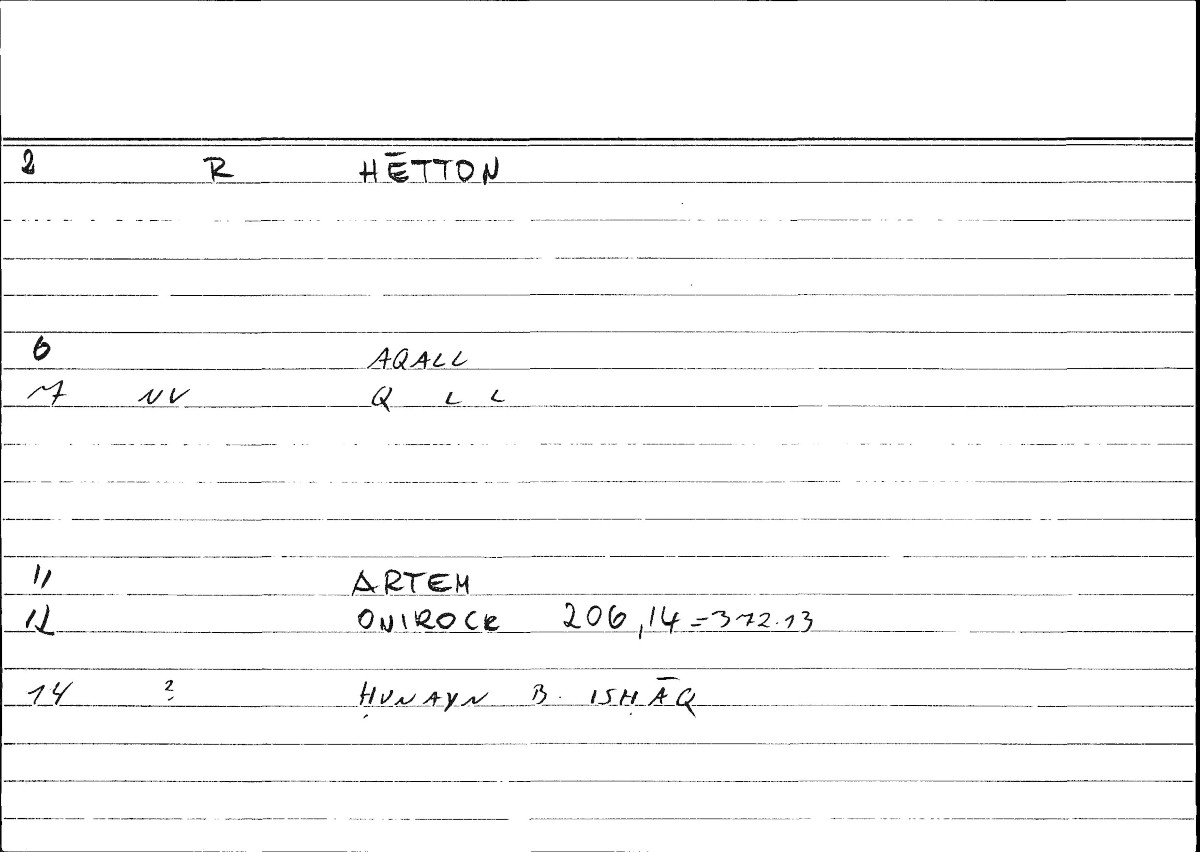 2 R HĒTTON
6 AQALL
7 NV Q L L
11 ARTEM
12 ONIROCR 206,14=372.13
14 ? ḤUNAYN B. ISḤĀQ